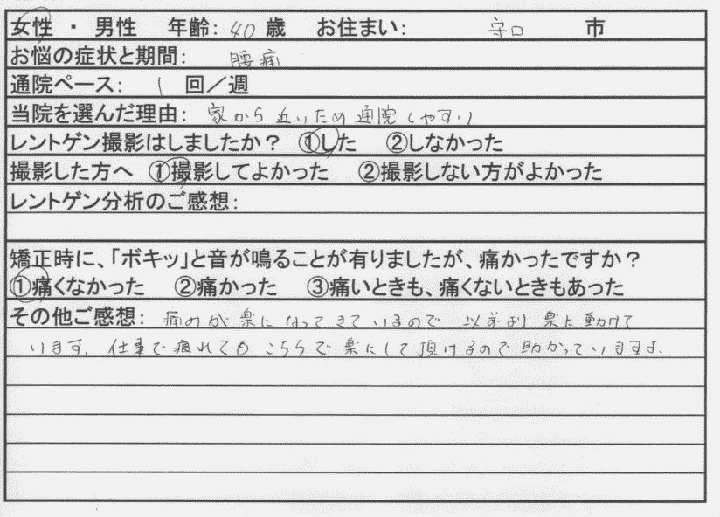 女性 ・ 男性 年齢: 40 歳 お住まい: 守口 市
お悩の症状と期間: 腰痛
通院ペース: 1 回／週
当院を選んだ理由: 家から近いため通院しやすい
レントゲン撮影はしましたか？ ①した ②しなかった
撮影した方へ ①撮影してよかった ②撮影しない方がよかった
レントゲン分析のご感想:
矯正時に、「ボキッ」と音が鳴ることが有りましたが、痛かったですか？
①痛くなかった ②痛かった ③痛いときも、痛くないときもあった
その他ご感想: 痛みが楽になってきているので 以前より楽に動けて
います。仕事で疲れても こちらで楽にして頂けるので助かっています。